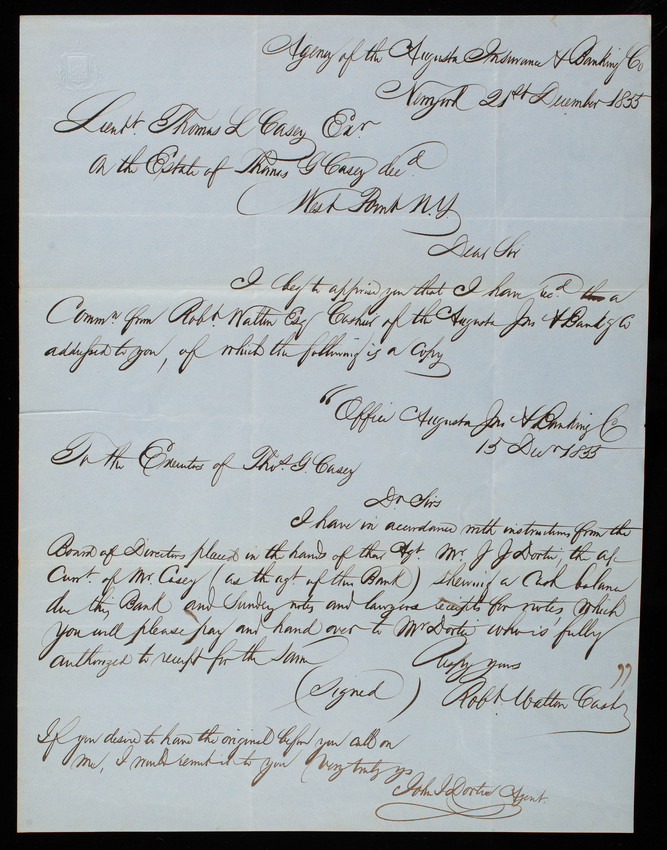 Agency of the Augusta Insurance & Banking Co
Newyork 21st December 1855
Lieut. Thomas L Casey Exr
On the Estate of Thomas G Casey decd
West Point N.Y
Dear Sir
I beg to apprise you that I have recd a
Commn from Robt Walton Esq Cashier of the Augusta Ins & Bankg Co
addressed to you, of which the following is a Copy
"Office Augusta Ins & Banking Co
15 Decr 1855
To the Executors of Thos. G. Casey
Dr Sirs
I have in accordance with instructions from the
Board of Directors placed in the hands of their Agt. Mr. J J Dortic, the ac-
Curt. of Mr. Casey (as the agt of this Bank) shewing a Cash balance
due this Bank and Sundry notes and lawyers receipts for notes which
you will please pay and hand over to Mr Dortic who is fully
authorized to receipt for the Same
Resply yours
(Signed) Robt. Walton Cashr "
If you desire to have the original before you call on
me, I would remit it to you Very truly yrs
John J Dortic Agent.